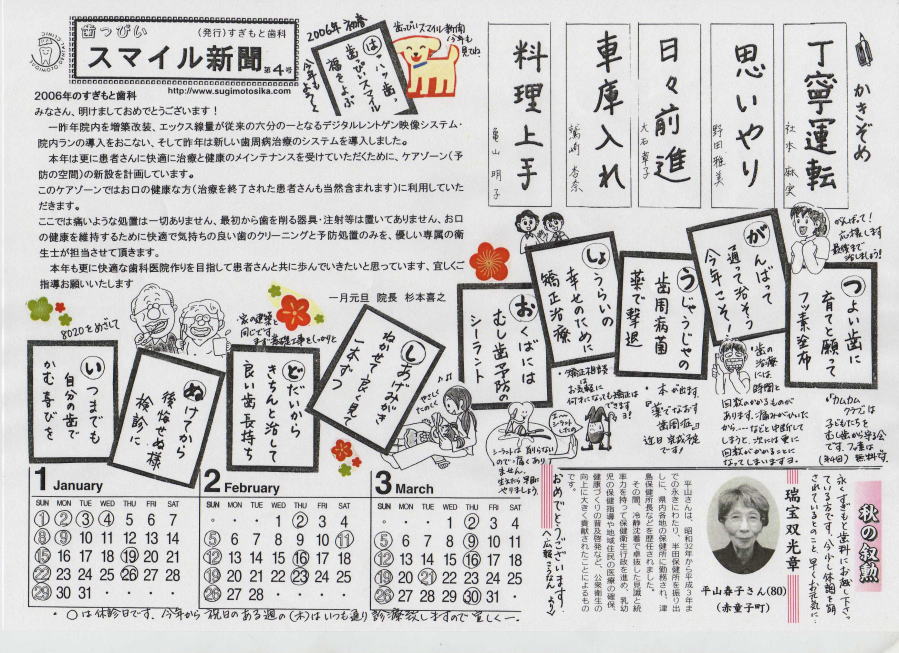 歯っぴい
(発行)すぎもと歯科
スマイル新聞 第4号
http://www.sugimotosika.com
2006年のすぎもと歯科
みなさん、明けましておめでとうございます!
一昨年院内を増築改装、エックス線量が従来の六分の一となるデジタルレントゲン映像システム・
院内ランの導入をおこない、そして昨年は新しい歯周病治療のシステムを導入しました。
本年は更に患者さんに快適に治療と健康のメンテナンスを受けていただくために、ケアゾーン(予
防の空間)の新設を計画しています。
このケアゾーンではお口の健康な方(治療を終了された患者さんも当然含まれます)に利用していた
だきます。
ここでは痛いような処置は一切ありません、最初から歯を削る器具・注射等は置いてありません、お口
の健康を維持するために快適で気持ちの良い歯のクリーニングと予防処置のみを、優しい専属の衛
生士が担当させて頂きます。
本年も更に快適な歯科医院作りを目指して患者さんと共に歩んでいきたいと思っています、宜しくご
指導お願いいたします
一月元旦 院長 杉本喜之
2006年 初春
はハッハッ歯、
歯っぴいスマイル
福をよぶ
今年もよろしく
歯っぴいスマイル新聞
今年も
見てね
かきぞめ
丁寧運転
社本 麻実
思いやり
野田雅美
日々前進
大石章子
車庫入れ
鷲崎 杏奈
料理上手
亀山 明子
がんばって!
応援します
最後まで
治しましょう!
つよい歯に
育てと願って
フッ素塗布
がんばって
通って治そう
今年こそ!
うじゃうじゃの
歯周病菌
薬で撃退
しょうらいの
幸せのために
矯正治療
おくばには
むし歯予防の
シーラント
しあげみがき
ねかせて良く見て
一本ずつ
どだいから
きちんと治して
良い歯長持ち
ぬけてから
後悔せぬ様
検診に
いつまでも
自分の歯で
かむ喜びを
8020をめざして
家の建築と
同じです。
まず基礎工事をしっかりと
やさしく
たのしく
シーラントは削らない
ので痛くあり
ません。
生えたら早目に
やりましょう。
矯正相談は
お気軽に
何才になっても矯正は
できます
ヨ!
・本が出ます。
『薬でなおす
歯周症』
近日完成予定
です!
歯の
治療
には
時間と
回数のかかるものが
あります。痛みがひいた
から…などと中断して
しまうと、次には更に
回数がかかることに
なってしまいますヨ。
カムカム
クラブは
子どもたちを
むし歯から守る会
です。
無料です
1 January
SUN MON TUE WED THU FRI SAT
1 2 3 4 5 6 7
8 9 10 11 12 13 14
15 16 17 18 19 20 21
22 23 24 25 26 27 28
29 30 31
2 February
SUN MON TUE WED THU FRI SAT
1 2 3 4
5 6 7 8 9 10 11
12 13 14 15 16 17 18
19 20 21 22 23 24 25
26 27 28
3 March
SUN MON TUE WED THU FRI SAT
1 2 3 4
5 6 7 8 9 10 11
12 13 14 15 16 17 18
19 20 21 22 23 24 25
26 27 28 29 30 31
・○は休診日です、今年から祝日のある週の(木)はいつも通り診療致しますので宜しくー。
秋の叙勲
永くすぎもと歯科にお越し下さっ
ている方です。今少し体調を崩
されているとのこと、早くお元気に…
瑞宝双光章
平山春子さん(80)
(赤童子町)
平山さんは、昭和32年から平成3年ま
での永きにわたり、半田保健所を振り出
しに、県内各地の保健所に勤務され、津
島保健所長などを歴任されました。
その間、冷静沈着で卓抜した見識と統
率力を持って保健衛生行政を進め、乳幼
児の保健指導や地域住民の医療の確保、
健康づくりの普及啓発など、公衆衛生の
向上に大きく貢献されたことによるもの
です。
おめでとうございます。
〈広報こうなんより〉